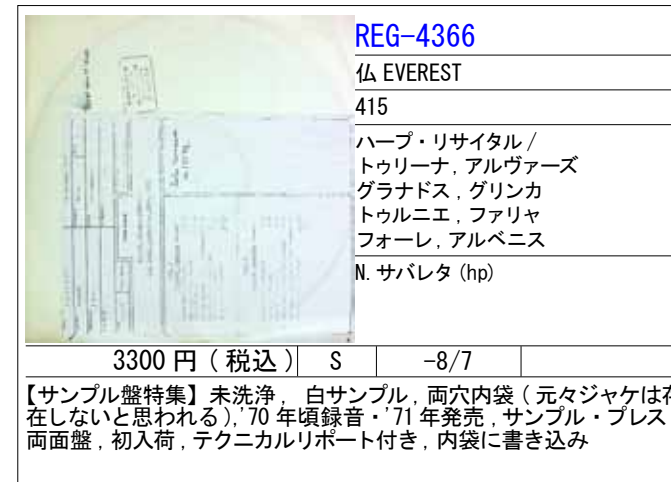 REG-4366
仏 EVEREST
415
ハープ・リサイタル /
トゥリーナ , アルヴァーズ
グラナドス , グリンカ
トゥルニエ , ファリャ
フォーレ , アルベニス
N. サバレタ (hp)
3300 円 ( 税込 ) S -8/7
【サンプル盤特集】 未洗浄 , 白サンプル , 両穴内袋 ( 元々ジャケは存
在しないと思われる ),'70 年頃録音・'71 年発売 , サンプル・プレス
両面盤 , 初入荷 , テクニカルリポート付き , 内袋に書き込み